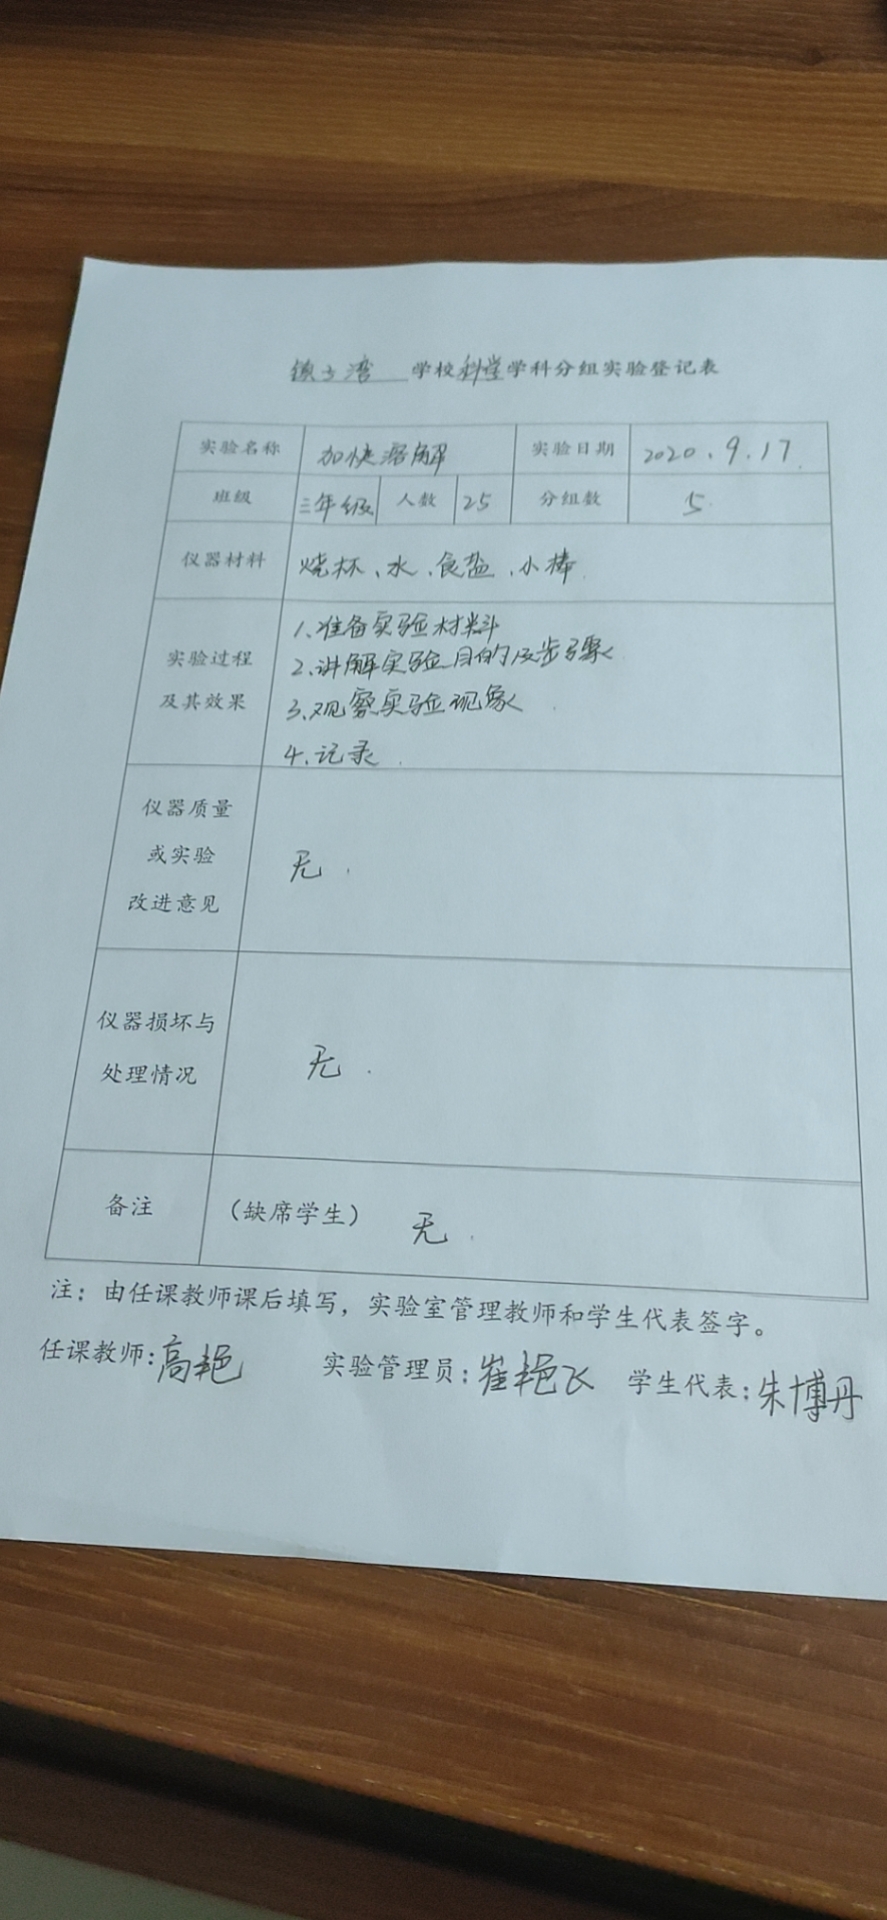 学校科学学科分组实验登记表
实验名称 加快溶解 实验日期 2020.9.17.
班级 三年级 人数 25 分组数 5
仪器材料 烧杯、水、食盐、小棒
实验过程
及其效果
1.准备实验材料
2.讲解实验目的及步骤
3.观察实验现象
4.记录.
仪器质量
或实验
改进意见
无.
仪器损坏与
处理情况
无.
备注 (缺席学生) 无.
注：由任课教师课后填写，实验室管理教师和学生代表签字。
任课教师：高艳 实验管理员：崔艳飞 学生代表：朱博丹